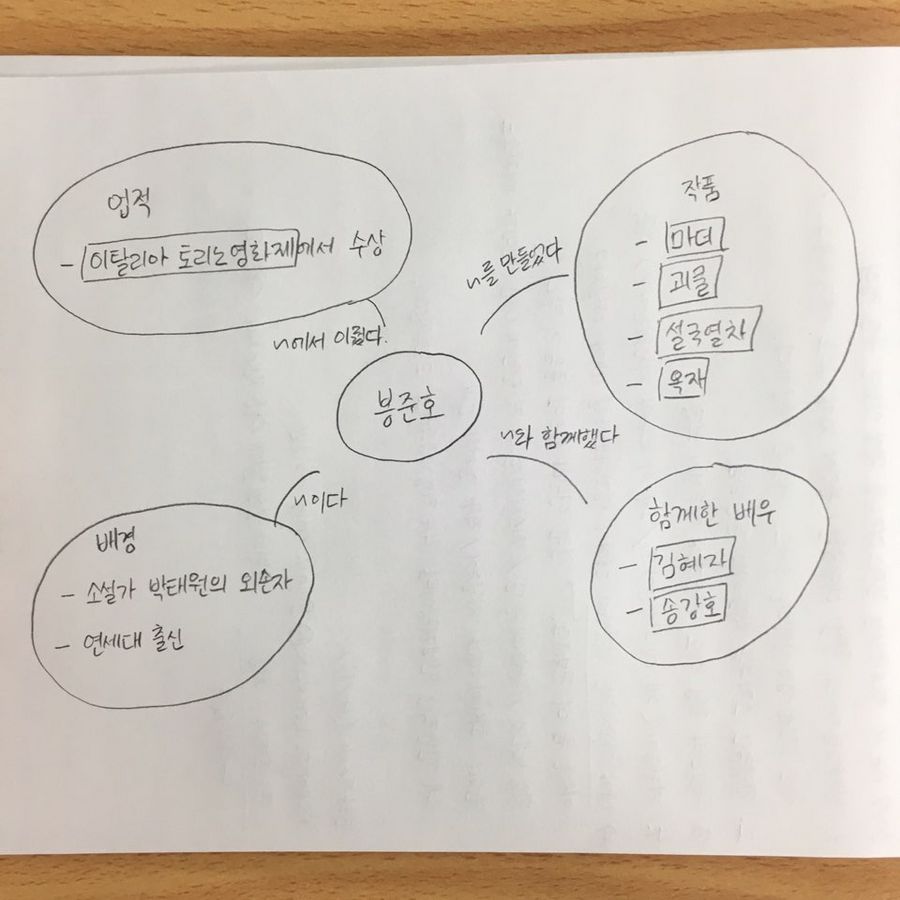 업적
- 이탈리아 토리노영화제에서 수상
~에서 이뤘다.
작품
- 마더
- 괴물
- 설국열차
- 옥자
~를 만들었다
봉준호
~와 함께했다
함께한 배우
- 김혜자
- 송강호
~이다
배경
- 소설가 박태원의 외손자
- 연세대 출신